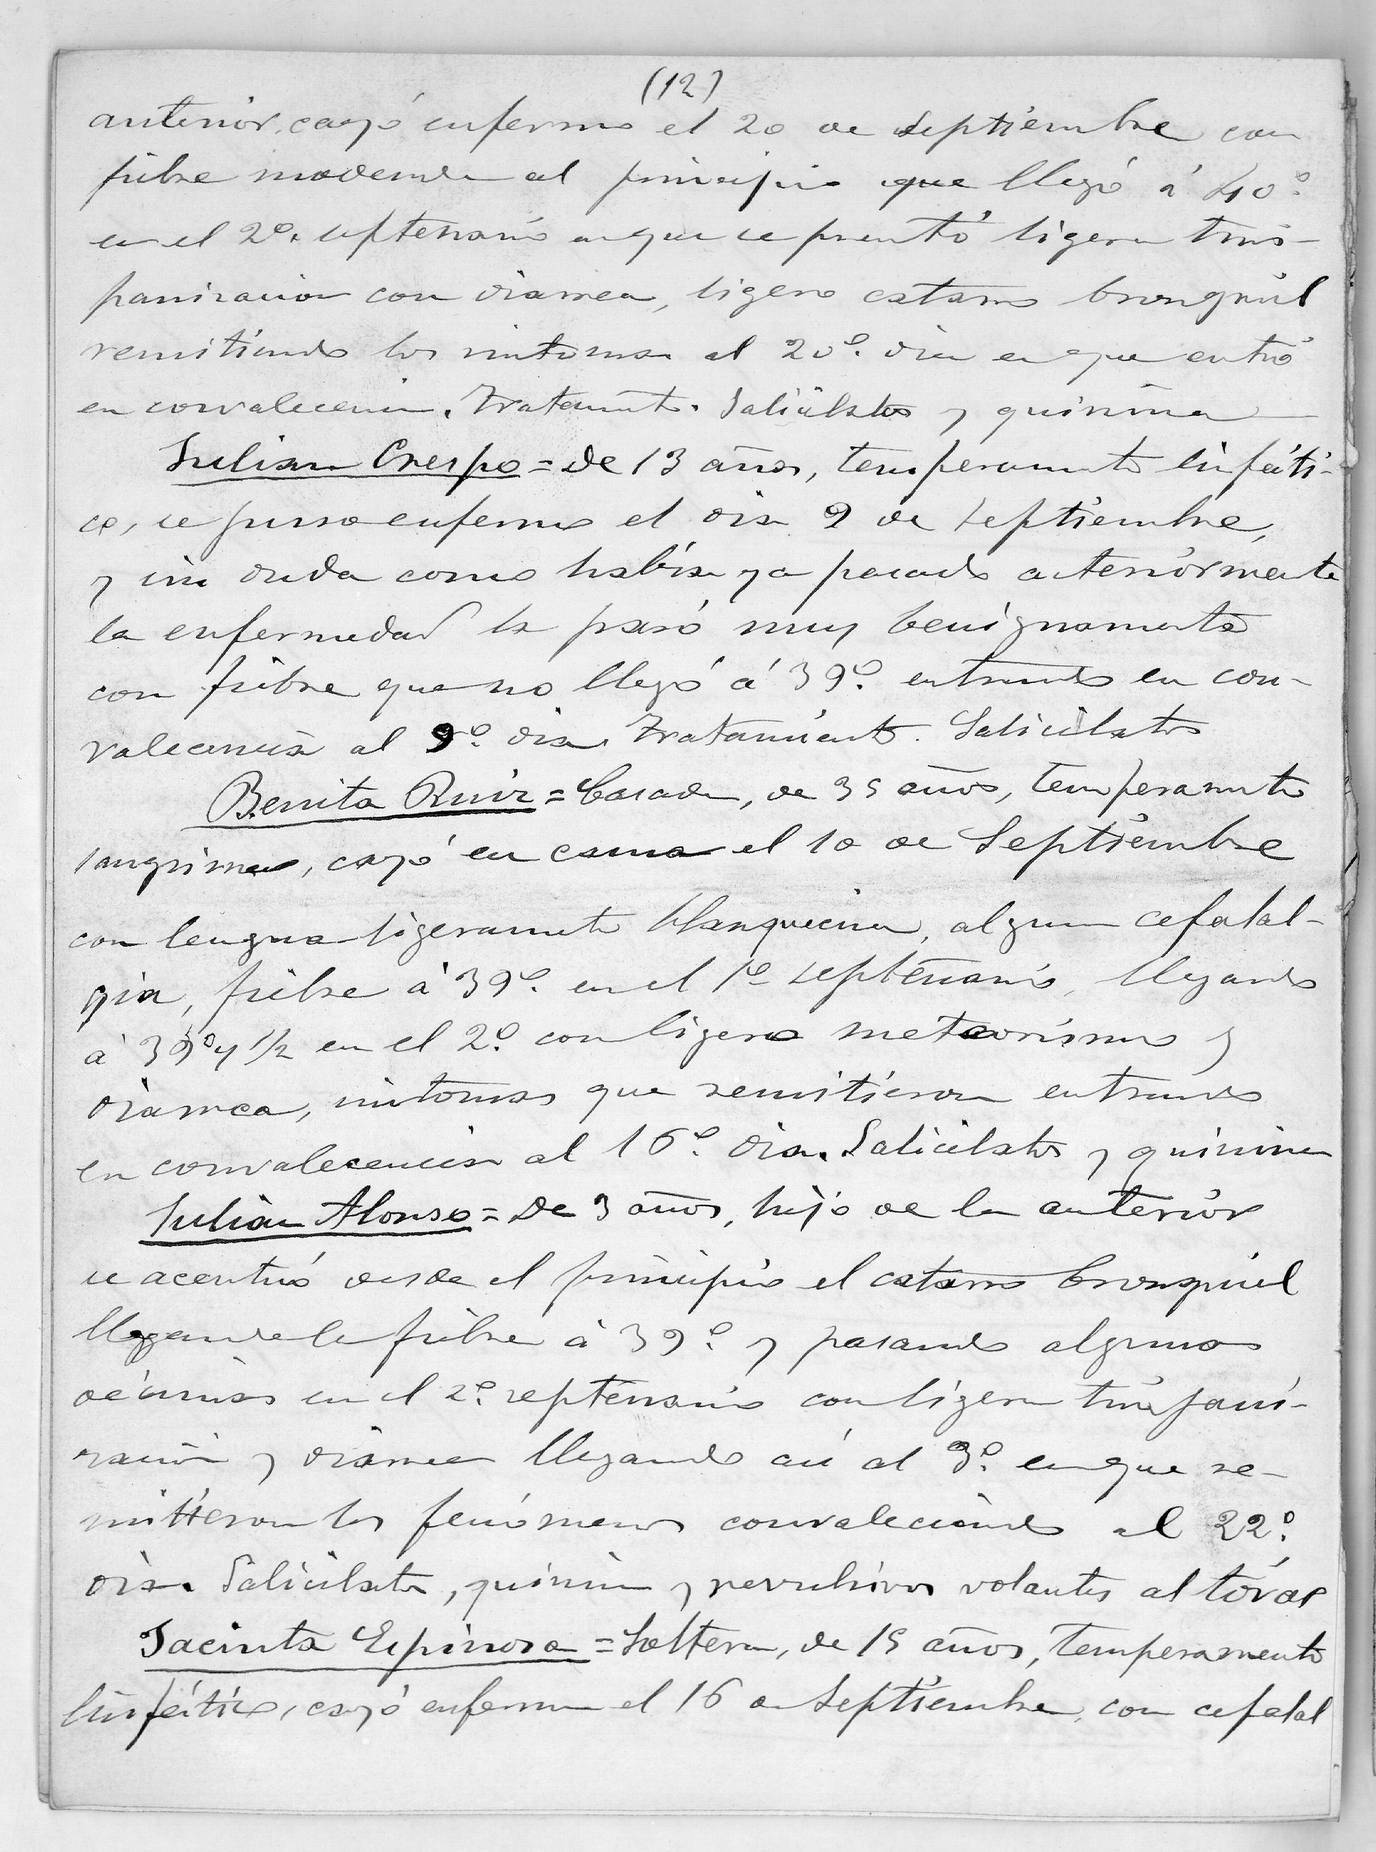 (12)
anterior, cayó enfermo el 20 de Septiembre con
fiebre moderada al principio que llegó á 40º.
en el 2º. septenario en que se presentó ligera tim-
panizacion con diarrea, ligero catarro bronquial
remitiendo los sintomas al 20º. dia en que entró
en convalecencia. Tratamto. Salicilatos y quinina
Julian Crespo = de 13 años, temperamento linfáti-
co, se puso enfermo el dia 9 de Septiembre,
y sin duda como habia ya pasado anteriormente
la enfermedad la pasó muy benignamente
con fiebre que no llegó á 39º. entrando en con-
valecencia al 9º. dia. Tratamiento. Salicilatos
Benita Ruiz = Casada, de 35 años, temperamento
sanguineo, cayó en cama el 10 de Septiembre
con lengua ligeramente blanquecina, alguna cefalal-
gia, fiebre á 39º. en el 1º septenario, llegando
á 39º y 1/2 en el 2º. con ligero meteorismo y
diarrea, sintomas que remitieron entrando
en convalecencia al 16º. dia. Salicilatos y quinina
Julian Alonso = De 3 años, hijo de la anterior
se acentuó desde el principio el catarro bronquial
llegando la fiebre á 39º. y pasando algunas
décimas en el 2º. septenario con ligera timpani-
zación y diarrea llegando así al 3º. en que re-
mitieron los fenómenos convaleciendo al 22º.
dia. Salicilato, quinina y revulsivos volantes al tórax
Jacinta Espinosa = Soltera, de 15 años, temperamento
linfático, cayó enferma el 16 de Septiembre, con cefalal